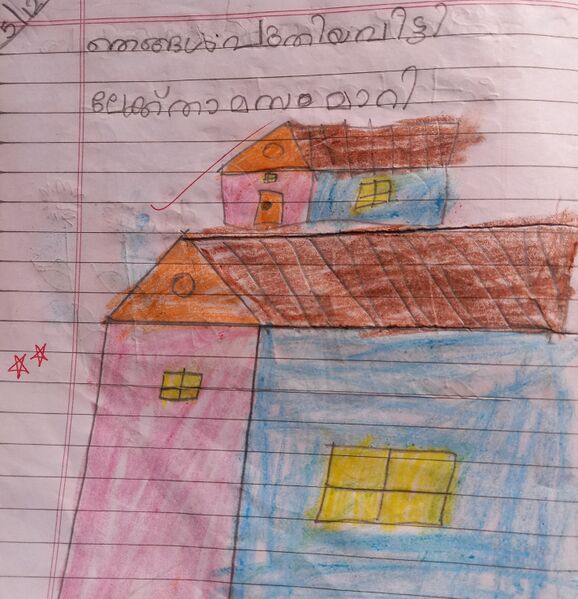 5/12
ഞങ്ങൾ പുതിയ വീട്ടി
ലേക്ക് താമസം മാറി